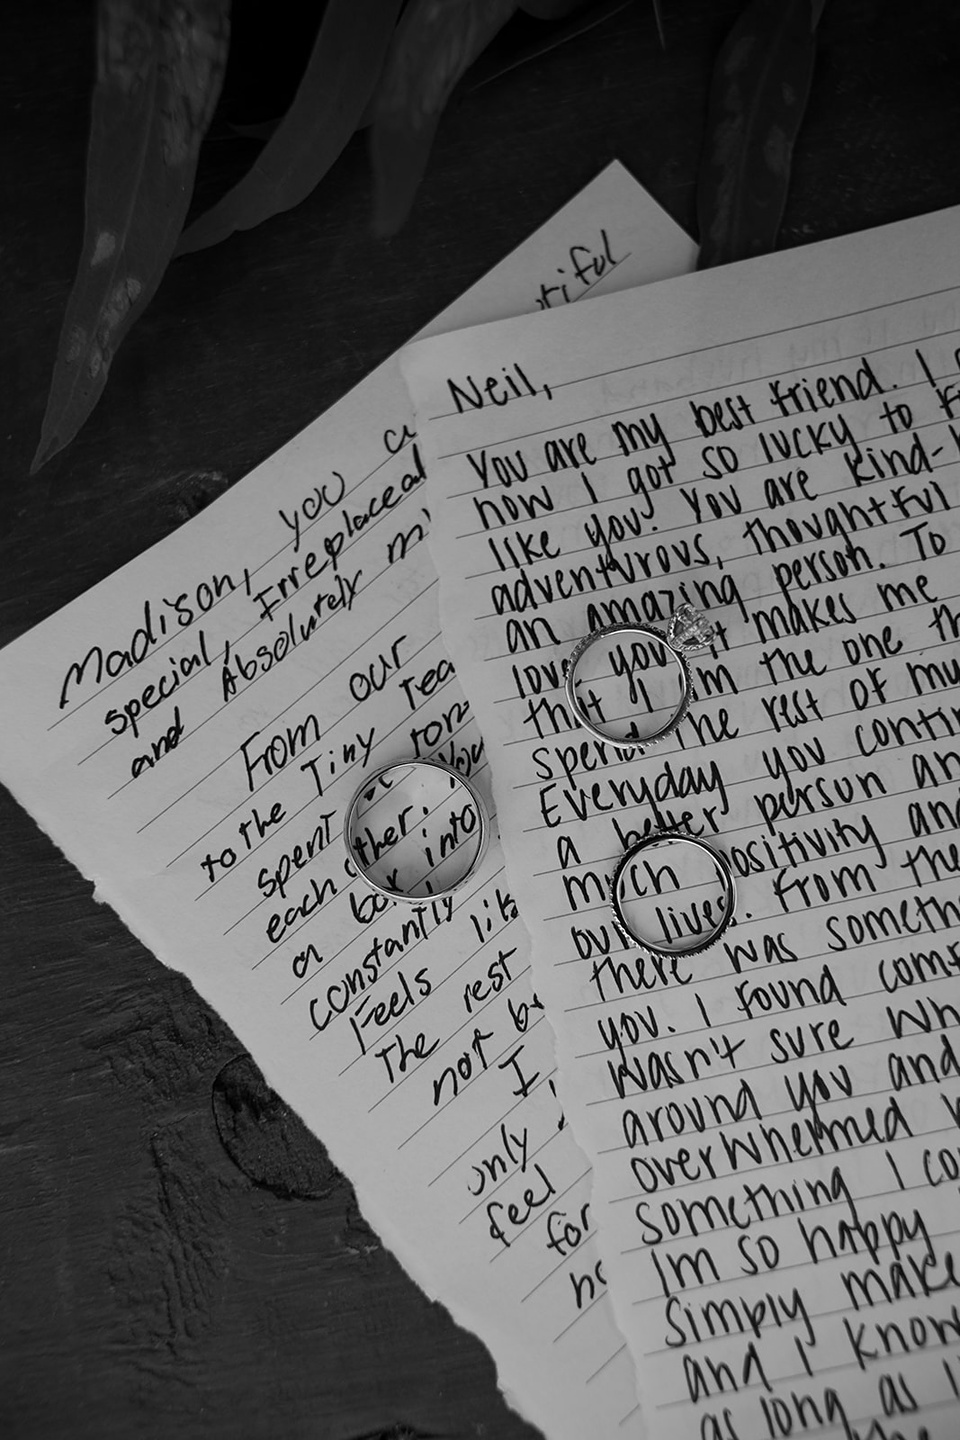 Madison, you
special, Irreplaceabl
and Absolutely
From our
to the Tiny
spent
each other. You
on into
constantly
Feels lik
The rest
not
I,
only
feel
for
Neil,
You are my best friend. I
how I got so lucky to
like you. You are kind-
adventurous, thoughtful
an amazing person. To
love you it makes me
that I am the one th
spend the rest of my
Everyday you contin
a better person an
much positivity and
our lives. From the
there was someth
you. I found comf
wasn't sure wh
around you and
overwhelmed
something I co
Im so happy
simply make
and I know
as long as I